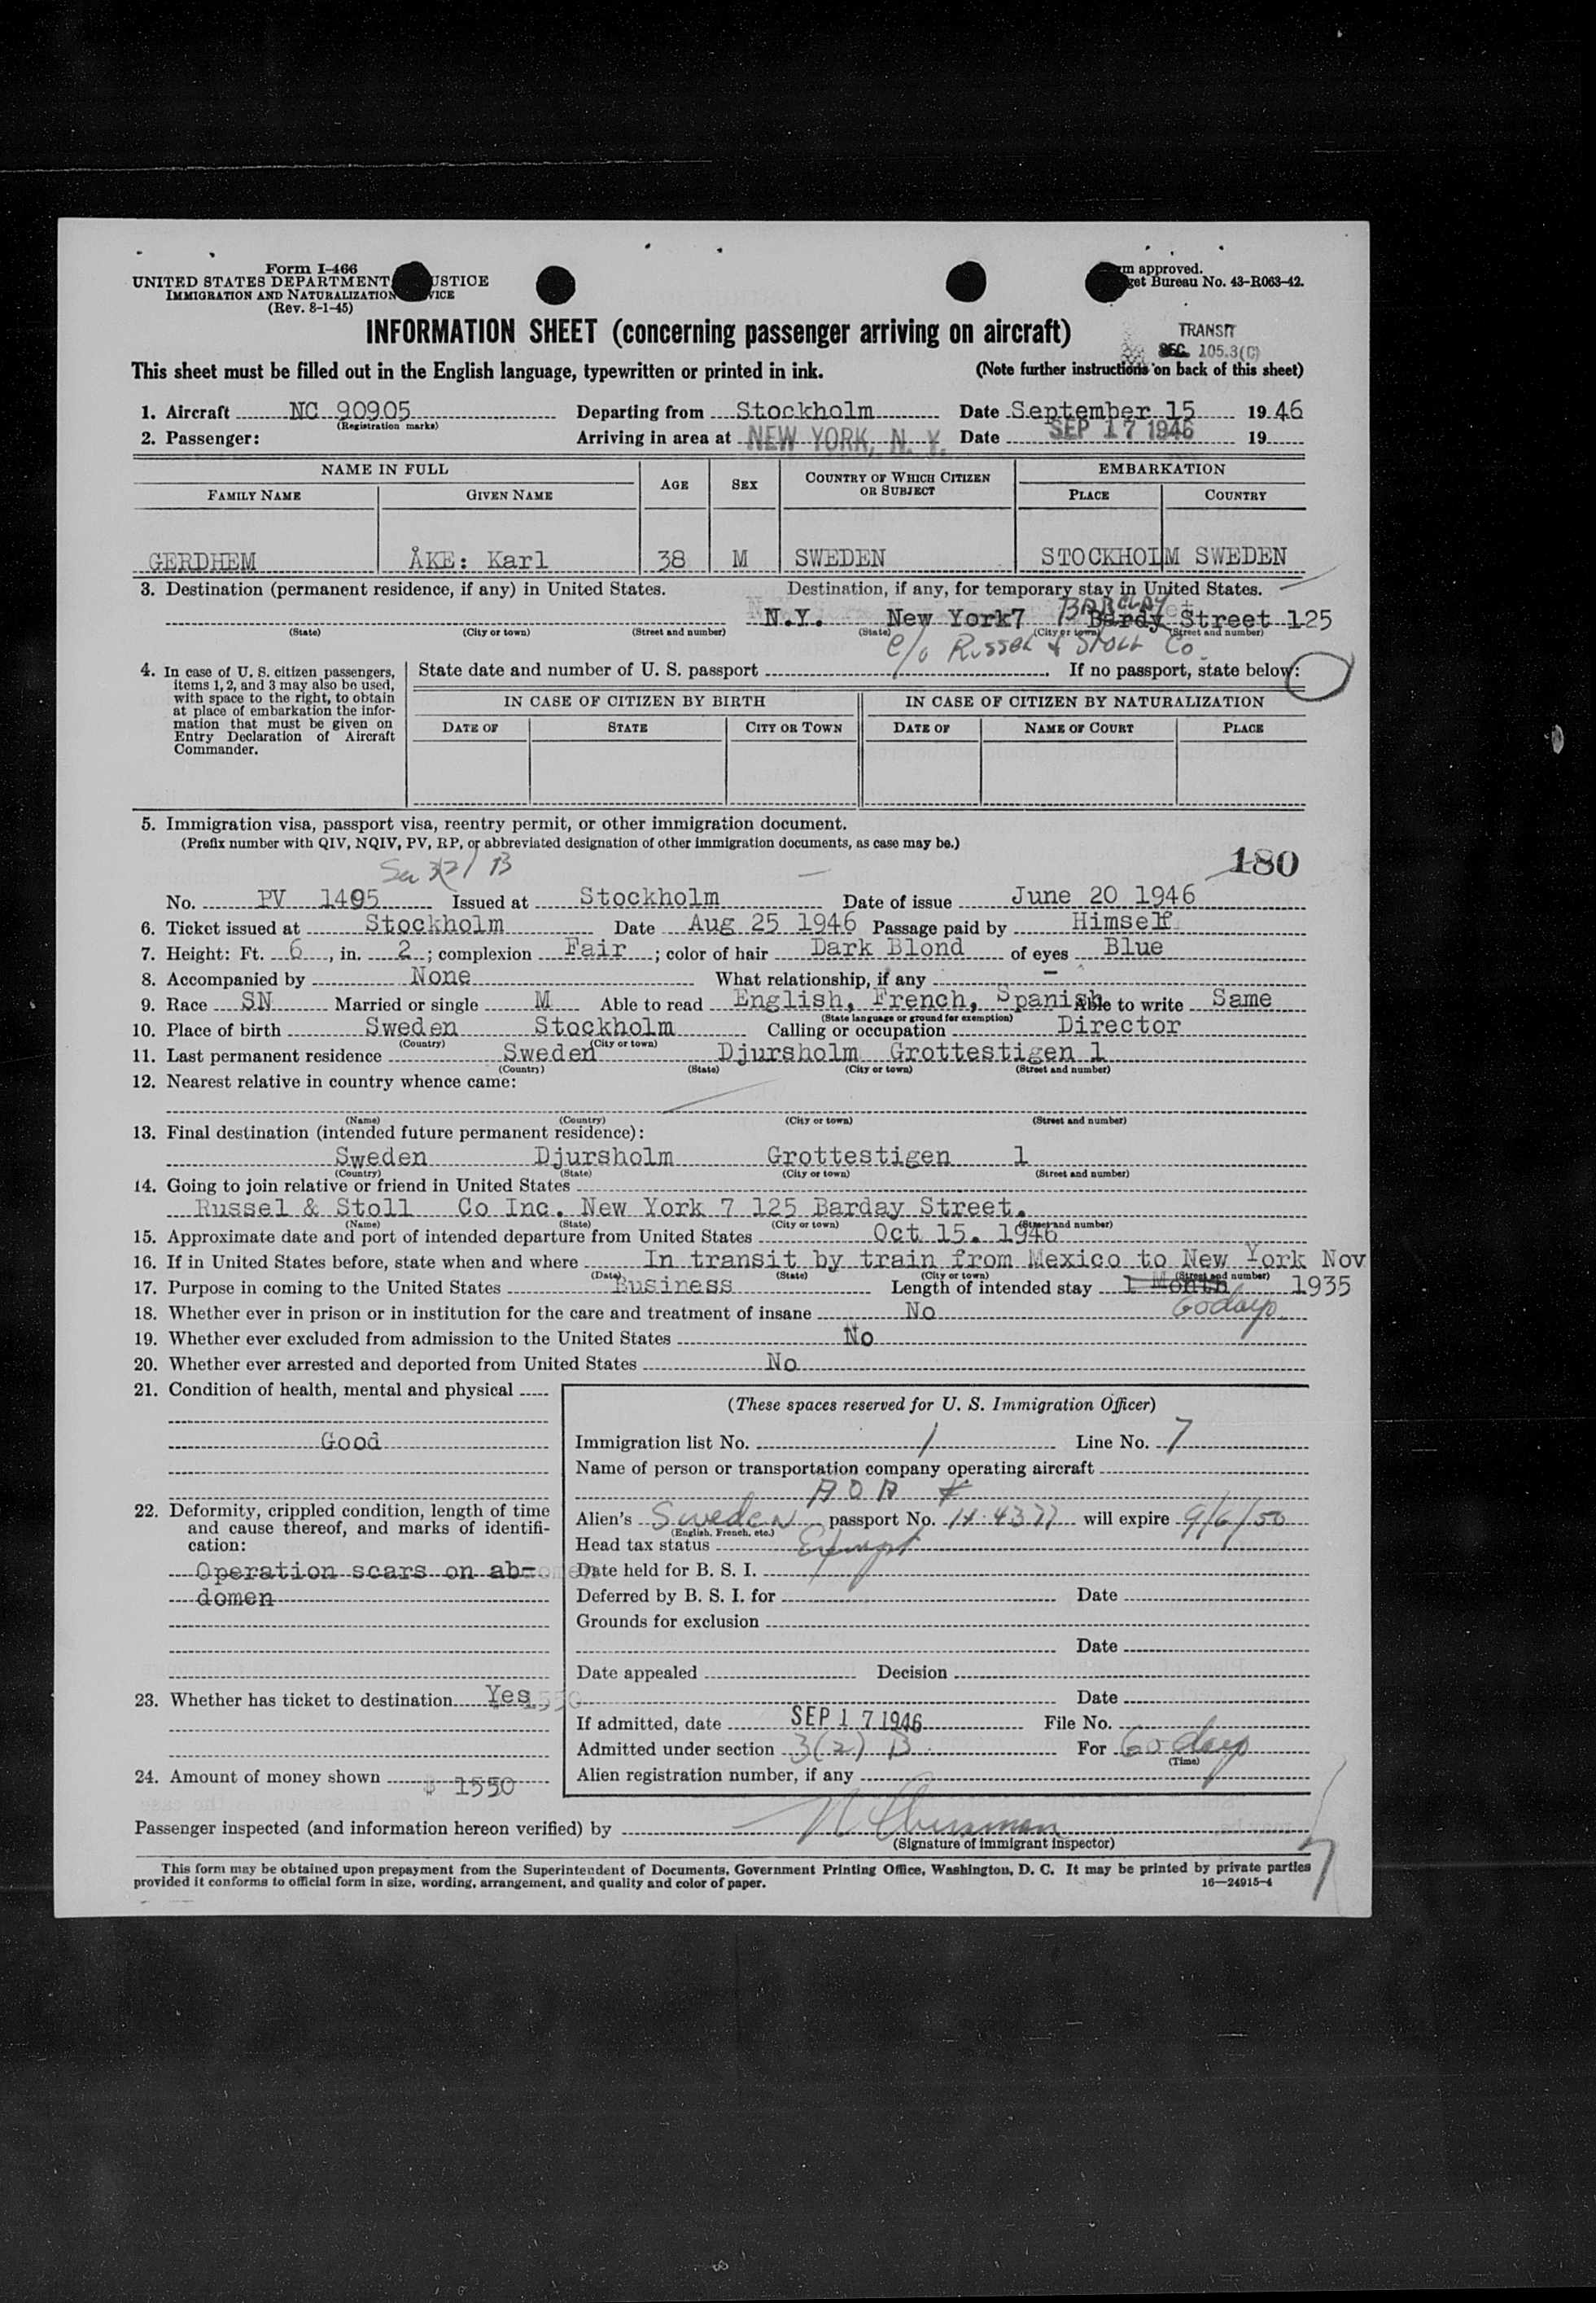 Form I-466
UNITED STATES DEPARTMENT USTICE
IMMIGRATION AND NATURALIZATION VICE
(Rev. 8-1-45)
m approved.
get Bureau No. 43-R063-42.
INFORMATION SHEET (concerning passenger arriving on aircraft)
TRANSIT
SEC. 105.3(C)
This sheet must be filled out in the English language, typewritten or printed in ink. (Note further instructions on back of this sheet)
1. Aircraft NC 90905 Departing from Stockholm Date September 15 1946
(Registration marks)
2. Passenger: Arriving in area at NEW YORK, N. Y. Date SEP 17 1946 19
NAME IN FULL AGE SEX COUNTRY OF WHICH CITIZEN OR SUBJECT EMBARKATION
FAMILY NAME GIVEN NAME PLACE COUNTRY
GERDHEM ÅKE: Karl 38 M SWEDEN STOCKHOLM SWEDEN
3. Destination (permanent residence, if any) in United States. Destination, if any, for temporary stay in United States.
BARCLAY
N.Y. New York7 Bardy Street 125
(State) (City or town) (Street and number) (State) (City or town) (Street and number)
c/o Russel & Stoll Co
4. In case of U. S. citizen passengers, items 1, 2, and 3 may also be used, with space to the right, to obtain at place of embarkation the information that must be given on Entry Declaration of Aircraft Commander.
State date and number of U. S. passport If no passport, state below:
IN CASE OF CITIZEN BY BIRTH IN CASE OF CITIZEN BY NATURALIZATION
DATE OF STATE CITY OR TOWN DATE OF NAME OF COURT PLACE
5. Immigration visa, passport visa, reentry permit, or other immigration document.
(Prefix number with QIV, NQIV, PV, RP, or abbreviated designation of other immigration documents, as case may be.)
180
No. PV 1495 Issued at Stockholm Date of issue June 20 1946
6. Ticket issued at Stockholm Date Aug 25 1946 Passage paid by Himself
7. Height: Ft. 6, in. 2; complexion Fair; color of hair Dark Blond of eyes Blue
8. Accompanied by None What relationship, if any -
9. Race SN Married or single M Able to read English, French, Spanish Able to write Same
(State language or ground for exemption)
10. Place of birth Sweden Stockholm Calling or occupation Director
(Country) (City or town)
11. Last permanent residence Sweden Djursholm Grottestigen 1
(Country) (State) (City or town) (Street and number)
12. Nearest relative in country whence came:
(Name) (Country) (City or town) (Street and number)
13. Final destination (intended future permanent residence):
Sweden Djursholm Grottestigen 1
(Country) (State) (City or town) (Street and number)
14. Going to join relative or friend in United States
Russel & Stoll Co Inc. New York 7 125 Barday Street.
(Name) (State) (City or town) (Street and number)
15. Approximate date and port of intended departure from United States Oct 15. 1946
16. If in United States before, state when and where In transit by train from Mexico to New York Nov
(Date) (State) (City or town) (Street and number)
17. Purpose in coming to the United States Business Length of intended stay 1 Month 1935
60 days
18. Whether ever in prison or in institution for the care and treatment of insane No
19. Whether ever excluded from admission to the United States No
20. Whether ever arrested and deported from United States No
21. Condition of health, mental and physical
Good
22. Deformity, crippled condition, length of time and cause thereof, and marks of identification:
Operation scars on ab-
domen
23. Whether has ticket to destination Yes
24. Amount of money shown $ 1550
(These spaces reserved for U. S. Immigration Officer)
Immigration list No. 1 Line No. 7
Name of person or transportation company operating aircraft
A O A
Alien's Sweden passport No. 14.4377 will expire 9/6/50
(English, French, etc.)
Head tax status Exempt
Date held for B. S. I.
Deferred by B. S. I. for Date
Grounds for exclusion
Date
Date appealed Decision
Date
If admitted, date SEP 17 1946 File No.
Admitted under section 3(2) B For 60 days
(Time)
Alien registration number, if any
Passenger inspected (and information hereon verified) by
(Signature of immigrant inspector)
This form may be obtained upon prepayment from the Superintendent of Documents, Government Printing Office, Washington, D. C. It may be printed by private parties
provided it conforms to official form in size, wording, arrangement, and quality and color of paper. 16—24915-4